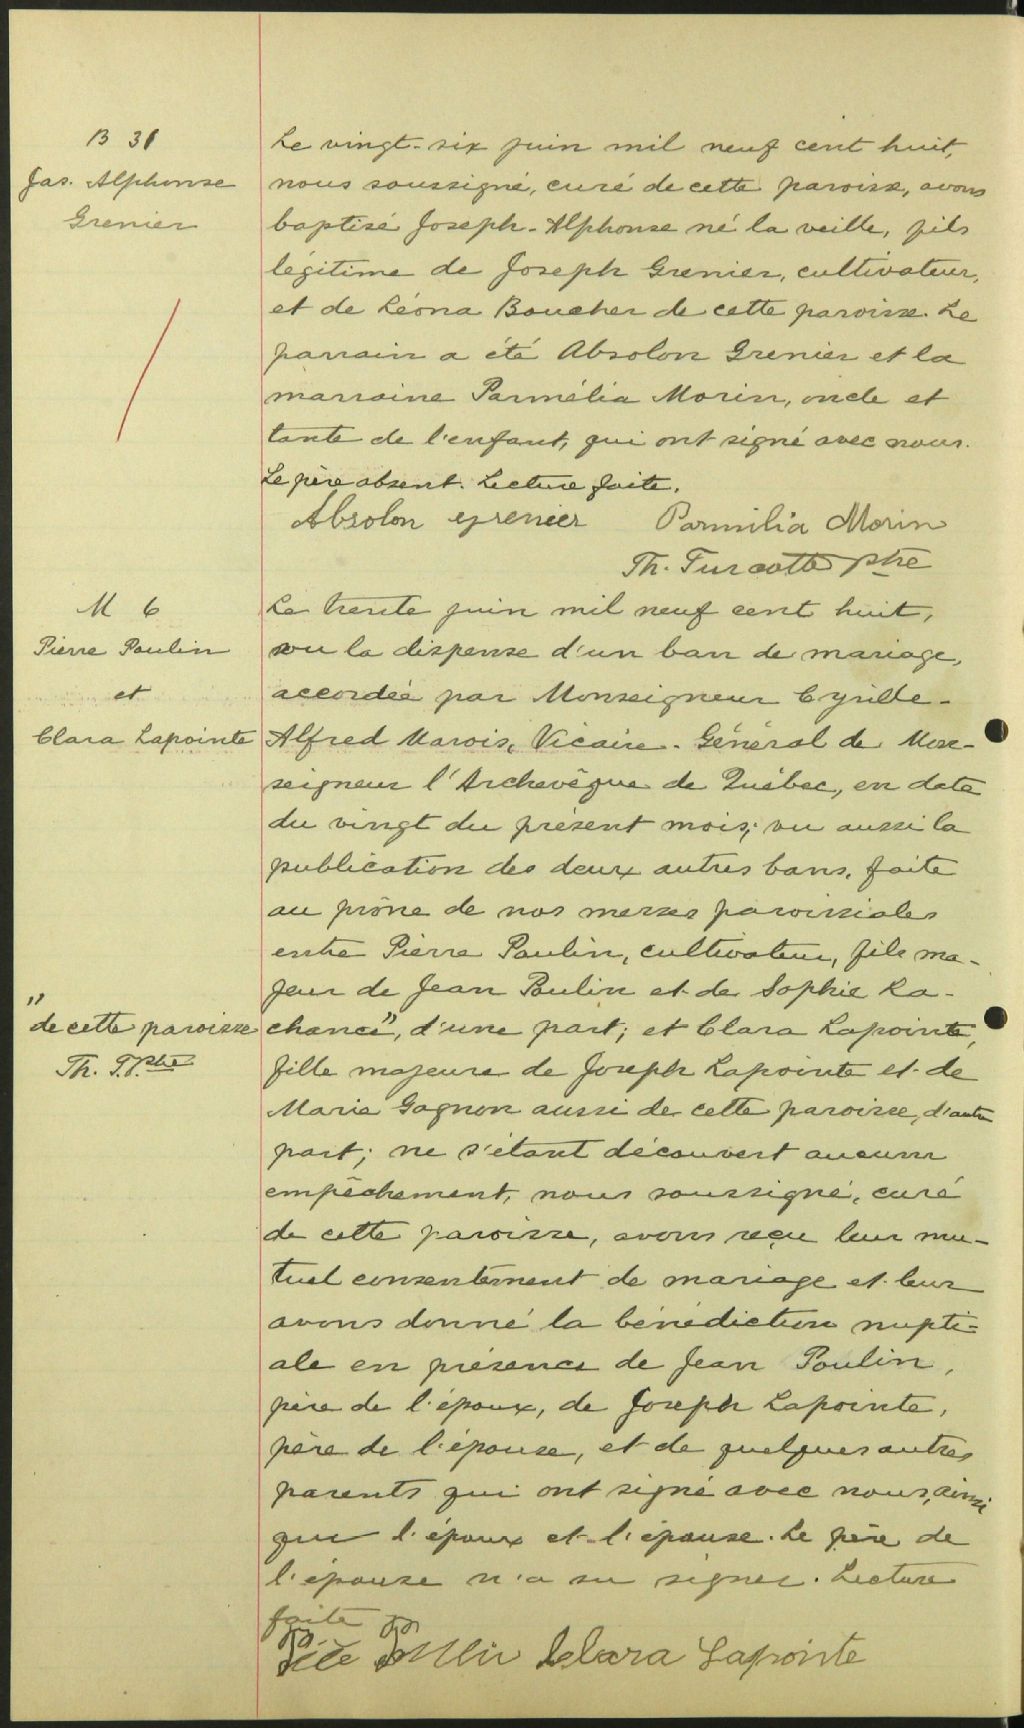 B 31
Jas. Alphonse
Grenier
Le vingt-six juin mil neuf cent huit,
nous soussigné, curé de cette paroisse, avons
baptisé Joseph-Alphonse né la veille, fils
légitime de Joseph Grenier, cultivateur,
et de Léona Boucher de cette paroisse. Le
parrain a été Absolon Grenier et la
marraine Parmélia Morin, oncle et
tante de l'enfant, qui ont signé avec nous.
Le père absent. Lecture faite.
Absolon grenier Parmilia Morin
Th. Turcotte ptre
M 6
Pierre Poulin
et
Clara Lapointe
Le trente juin mil neuf cent huit,
vu la dispense d'un ban de mariage,
accordée par Monseigneur Cyrille-
Alfred Marois, Vicaire-Général de Mon-
seigneur l'Archevêque de Québec, en date
du vingt du présent mois; vu aussi la
publication des deux autres bans, faite
au prône de nos messes paroissiales
entre Pierre Poulin, cultivateur, fils ma-
jeur de Jean Poulin et de Sophie La-
chance", d'une part; et Clara Lapointe,
"
de cette paroisse
Th. T. ptre
fille majeure de Joseph Lapointe et de
Marie Gagnon aussi de cette paroisse, d'autre
part; ne s'étant découvert aucun
empêchement, nous soussigné, curé
de cette paroisse, avons reçu leur mu-
tuel consentement de mariage et leur
avons donné la bénédiction nupti-
ale en présence de Jean Poulin,
père de l'époux, de Joseph Lapointe,
père de l'épouse, et de quelques autres
parents qui ont signé avec nous, ainsi
que l'époux et l'épouse. Le père de
l'épouse n'a su signer. Lecture
faite
Clara Lapointe